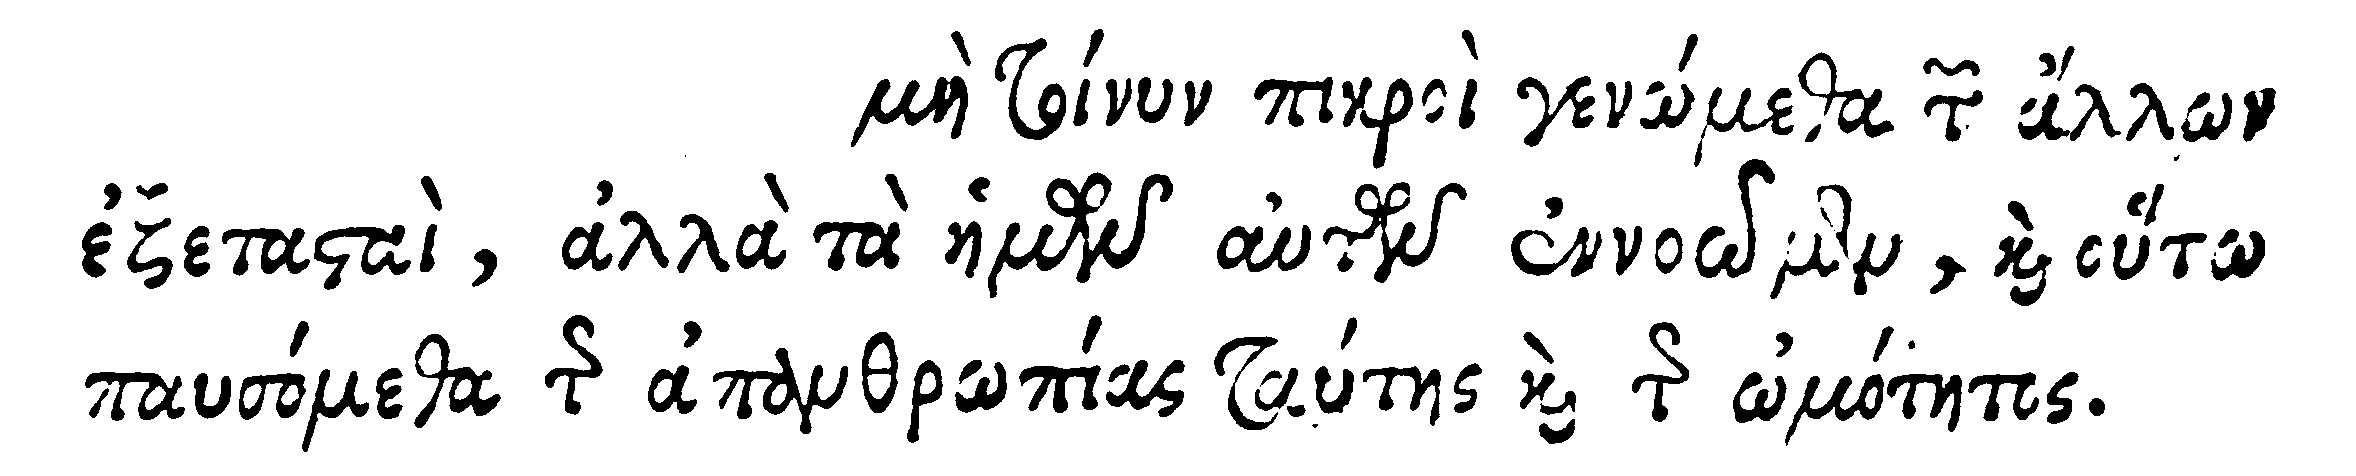 μὴ τοίνυν πικροὶ γενώμεθα τῶν ἄλλων
ἐξετασταὶ, ἀλλὰ τὰ ἡμῶν αὐτῶν ἐννοῶμεν, καὶ οὕτω
παυσόμεθα τῆς ἀπανθρωπίας ταύτης καὶ τῆς ὠμότητος.